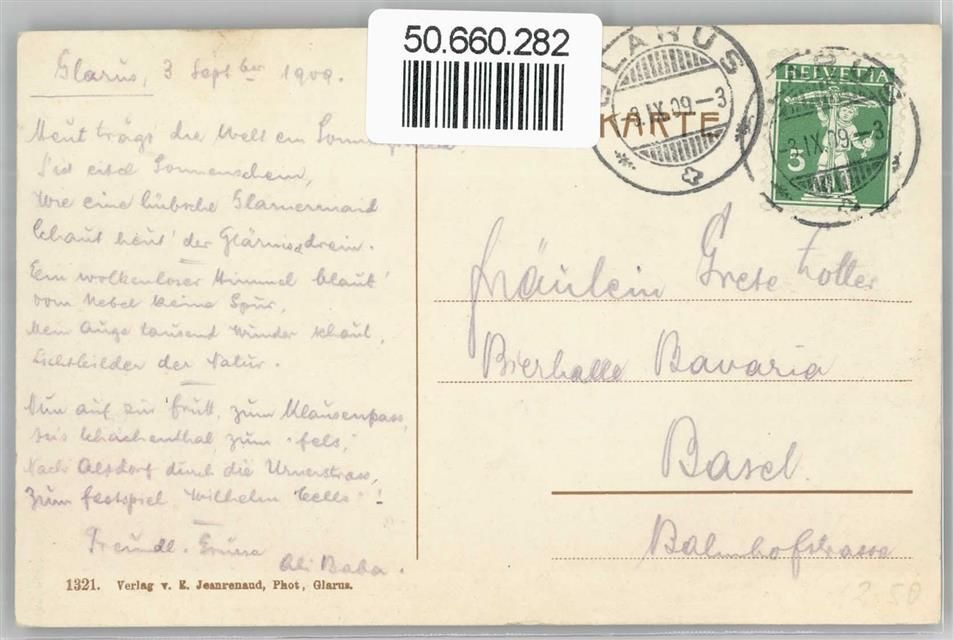 50.660.282
Glarus, 3 Septber 1909.
GLARUS
3.IX.09-3
KARTE
HELVETIA
5
3.IX.09-3
Heut trägt die Welt ein
S'ist eitel Sonnenschein,
Wie eine hübsche Glarnermaid
Schaut heut' der Glärnisch drein.
Ein wolkenloser Himmel blaut'
vom Nebel keine Spur,
Mein Auge tausend Wunder schaut,
Lichtbilder der Natur.
Nun auf zur Frutt, zum Klausenpass,
Ins Schächenthal, zum "Fels,"
Nach Altdorf durch die Urnerstrass,
Zum Festspiel Wilhelm Tells!
Freundl. Grüsse
Ali Baba.
Fräulein Grete Zoller
Bierhalle Bavaria
Basel.
Bahnhofstrasse
1321. Verlag v. E. Jeanrenaud, Phot, Glarus.
2.50